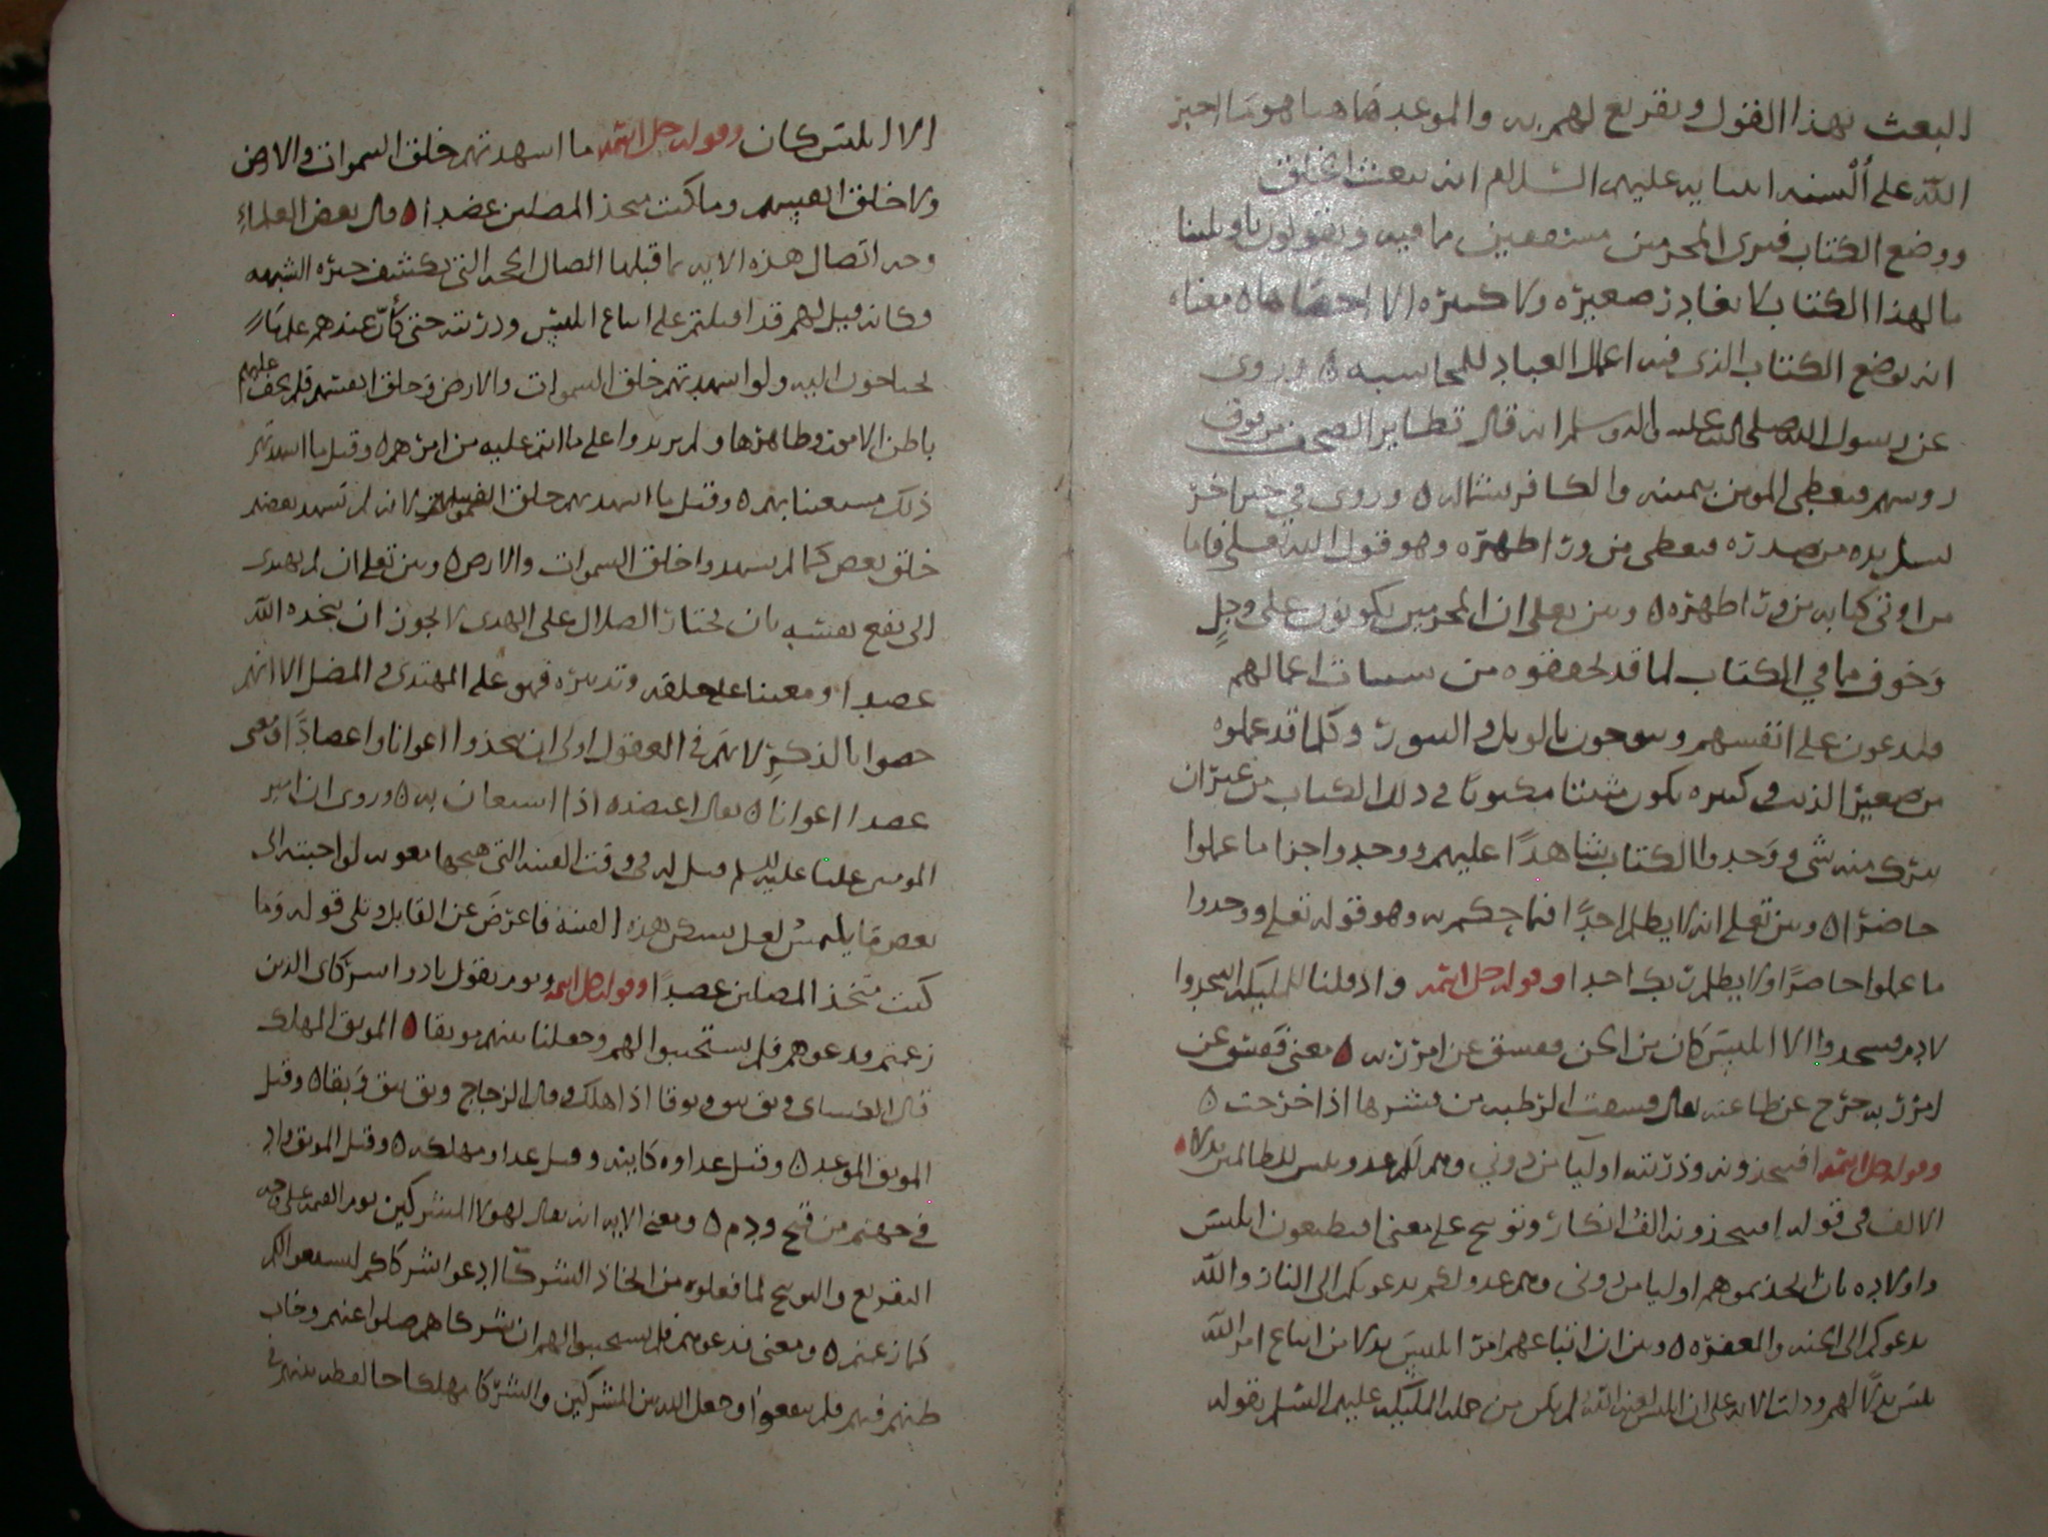 البعث بهذا القول وتقريع لهم به والموعد هاهنا هو ما اخبر
الله على ألسنه انبيايه عليهم السلام انه يبعث الخلق
ووضع الكتاب فترى المجرمين مشفقين مما فيه ويقولون ياويلتنا
مال هذا الكتاب لا يغادر صغيره ولا كبيره الا احصاها ٥ معناه
انه يوضع الكتاب الذي فيه اعمال العباد للمحاسبه ٥ وروى
عن رسول الله صلى الله عليه واله وسلم انه قال تطاير الصحف من فوق
روسهم فيعطى المومن بيمينه والكافر بشماله ٥ وروى في خبر اخر
يده من صدره فيعطى من ورا ظهره وهو قول الله تعلى فاما
من اوتي كتابه من ورا ظهره ٥ وبين تعلى ان المجرمين يكونون على وجل
وخوف مما في الكتاب لما قد تحققوه من سيات اعمالهم
فيدعون على انفسهم وينوحون بالويل والثبور وكلما قد عملوه
من صغير الذنب وكبيره يكون مثبتا مكتوبا في ذلك الكتاب من غير ان
يترك منه شي ووجدوا الكتاب شاهدًا عليهم ووجدوا جزا ما عملوا
حاضرا ٥ وبين تعلى انه لا يظلم احدًا فيما حكم به وهو قوله تعلى ووجدوا
ما عملوا حاضرًا ولا يظلم ربك احدا وقوله جل اسمه واذ قلنا للمليكه اسجدوا
لادم فسجدوا الا ابليس كان من الجن ففسق عن امر ربه ٥ معنى ففسق عن
امر ربه خرج عن طاعته يقال فسقت الرطبه من قشرها اذا خرجت ٥
وقوله جل اسمه افتتخذونه وذريته اوليا من دوني وهم لكم عدو بيس للظالمين بدلا ٥
الالف في قوله افتتخذونه الف انكار وتوبيخ على معنى افتطيعون ابليس
واولاده بان اتخذتموهم اوليا من دوني وهم عدو لكم يدعونكم الى النار والله
يدعوكم الى الجنه والمغفره ٥ وبين ان اتباعهم امر ابليس بدلا من اتباع امر الله
بيس بدلًا لهم ودلت الايه على ان ابليس لعنه الله لم يكن من جمله المليكه عليهم السلم بقوله
الا ابليس كان وقوله جل اسمه ما اشهدتهم خلق السموات والارض
ولا خلق انفسهم وما كنت متخذ المضلين عضدا ٥ قال بعض العلماء
وجه اتصال هذه الايه بما قبلها اتصال الحجه التي تكشف حيره الشبهه
فكانه قيل لهم قد اقبلتم على اتباع ابليس وذريته حتى كأنّ عندهم علمًا
يحتاجون اليه ولو اشهدتهم خلق السموات والارض وخلق انفسهم فلم يخف عليهم
باطن الامور وظاهرها ولم يزيدوا على ما انتم عليه من امرهم ٥ وقيل ما اشهدتهم
ذلك مستعينا بهم ٥ وقيل ما اشهدتهم خلق انفسهم لانه لم يشهد بعضهم
خلق بعض كما لم يشهدوا خلق السموات والارض ٥ وبين تعلى ان لم يهتدى
الى نفع نفسه بان يختار الضلال على الهدى لا يجوز ان يتخذه الله
عضدا ومعينا على خلقه وتدبيره فهو على المهتدى والمضل الا انهم
خصوا بالذكر لانهم في العقول اولى ان يتخذوا اعوانا واعضادًا ومعنى
عضدا اعوانا ٥ يقال اعتضده اذا استعان به ٥ وروى ان امير
المومنين عليا عليه السلم قيل له في وقت الفتنه التي هيجها معويه لو اجبته الى
بعض ما يلتمس لعل يسكن هذه الفتنة فاعرض عن القايل وتلى قوله وما
كنت متخذ المضلين عضدًا وقوله جل اسمه ويوم يقول نادوا شركاى الذين
زعمتم فدعوهم فلم يستجيبوا لهم وجعلنا بينهم موبقا ٥ الموبق المهلك
قال الكساى وبق يبق وبوقا اذا هلك وقال الزجاج وبق يبق وبقا ٥ وقيل
الموبق الموعد ٥ وقيل عداوه كاينه وقيل عداومهلكه ٥ وقيل الموبق واد
في جهنم من قيح ودم ٥ ومعنى الايه انه يقال لهولا المشركين يوم القيمه على وجه
التقريع والتوبيخ لما فعلوه من اتخاذ الشركا ادعوا شركاكم ليشفعوا لكم
كما زعمتم ٥ ومعنى فدعوهم فلم يستجيبوا لهم ان شركاهم ضلوا عنهم وخاب
ظنهم فيهم فلم ينفعوا وجعل الله بين المشركين والشركا مهلكا حال بينهم في